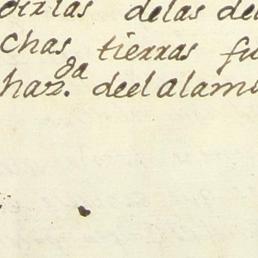 dixlas delas de
chas tierras fu
haz.da deel alam